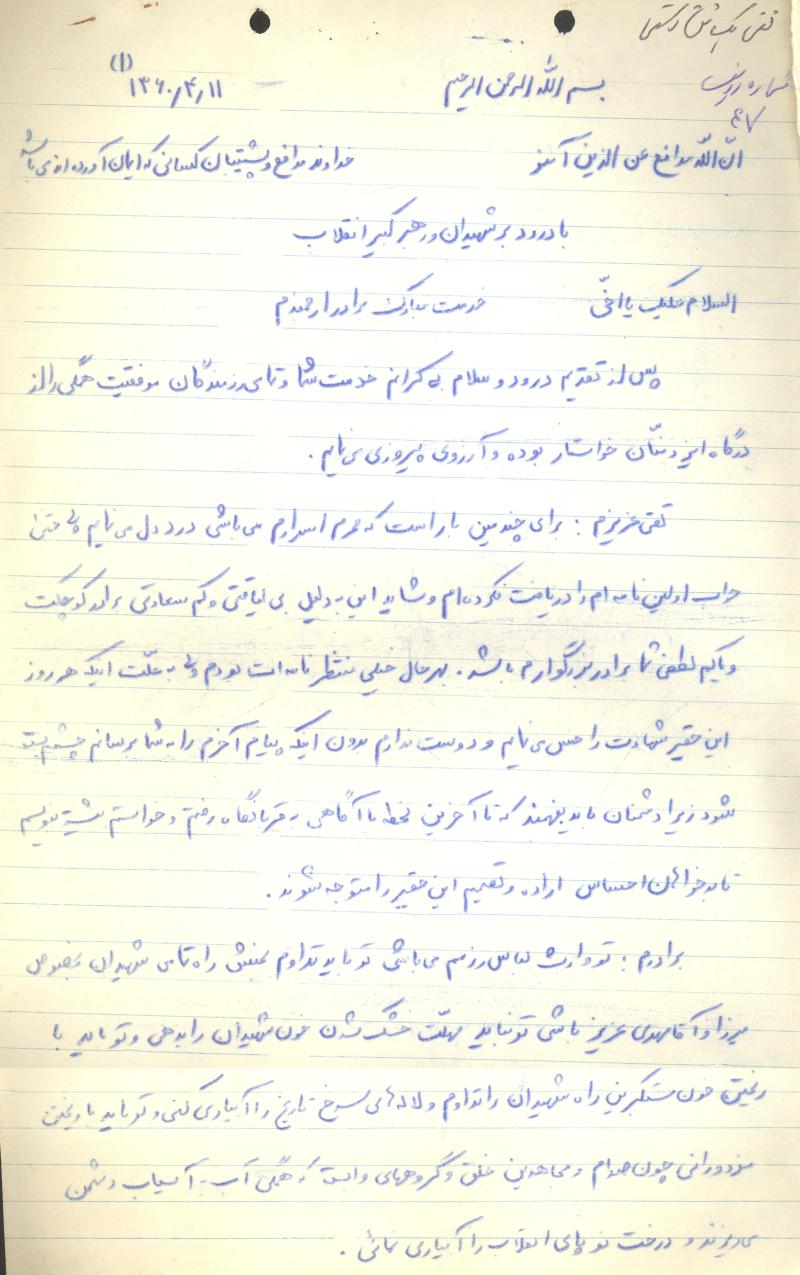 (۱)
بسم الله الرحمن الرحیم ۱۳۶۰/۴/۱۱
شماره ۴۷
ان الله یدافع عن الذین آمنو خداوند مدافع و پشتیبان کسانی که ایمان آورده اند می باشد
با درود بر شهیدان و رهبر کبیر انقلاب
السلام علیک یا اخی خدمت مبارک برادر ارجمندم
پس از تقدیم درود و سلام بی کرانم خدمت شما و تمامی رزمندگان موفقیت همگی را از
درگاه ایزد منّان خواستار بوده و آرزوی پیروزی می نمایم.
تقی عزیزم: برای چندمین بار است که محرم اسرارم می باشی درد دل می نمایم ولی حتی
جواب اولین نامه ام را دریافت نکرده ام و شاید این به دلیل بی لیاقتی و کم سعادتی برادر کوچکت
و یا کم لطفی شما برادر بزرگوارم باشد. بهرحال خیلی منتظر نامه ات بودم ولی به علّت اینکه هر روز
این حقیر شهادت را حس می نمایم و دوست ندارم بدون اینکه پیام آخرم را به شما برسانم چشمم بسته
شود زیرا دشمنان باید بفهمند که تا آخرین لحظه با آگاهی به قربانگاه رفتم و خواستم بنویسم
تا بدخواهان احساس اراده و تصمیم این حقیر را متوجه شوند.
برادرم: تو وارث لباس رزمم می باشی تو باید تداوم بخش راه تمامی شهیدان بخصوص
میرزا و آقامهدی عزیز باشی تو نباید مهلت خشک شدن خون شهیدان را بدهی و تو باید با
ریختن خون ستمگرین راه شهیدان را تداوم و لاله های سرخ تاریخ را آبیاری کنی و تو باید با ریختن
مزدورانی چون صدام و مجاهدین خلق و گروههای وابسته که همگی آب به آسیاب دشمن
می ریزند و درخت نو پای انقلاب را آبیاری نمائی.